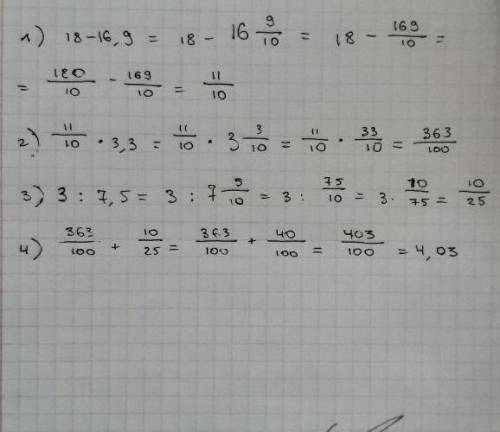 1) 18-16,9 = 18 - 16 9/10 = 18 - 169/10 =
= 180/10 - 169/10 = 11/10
2) 11/10 · 3,3 = 11/10 · 3 3/10 = 11/10 · 33/10 = 363/100
3) 3 : 7,5 = 3 : 7 5/10 = 3 : 75/10 = 3 · 10/75 = 10/25
4) 363/100 + 10/25 = 363/100 + 40/100 = 403/100 = 4,03